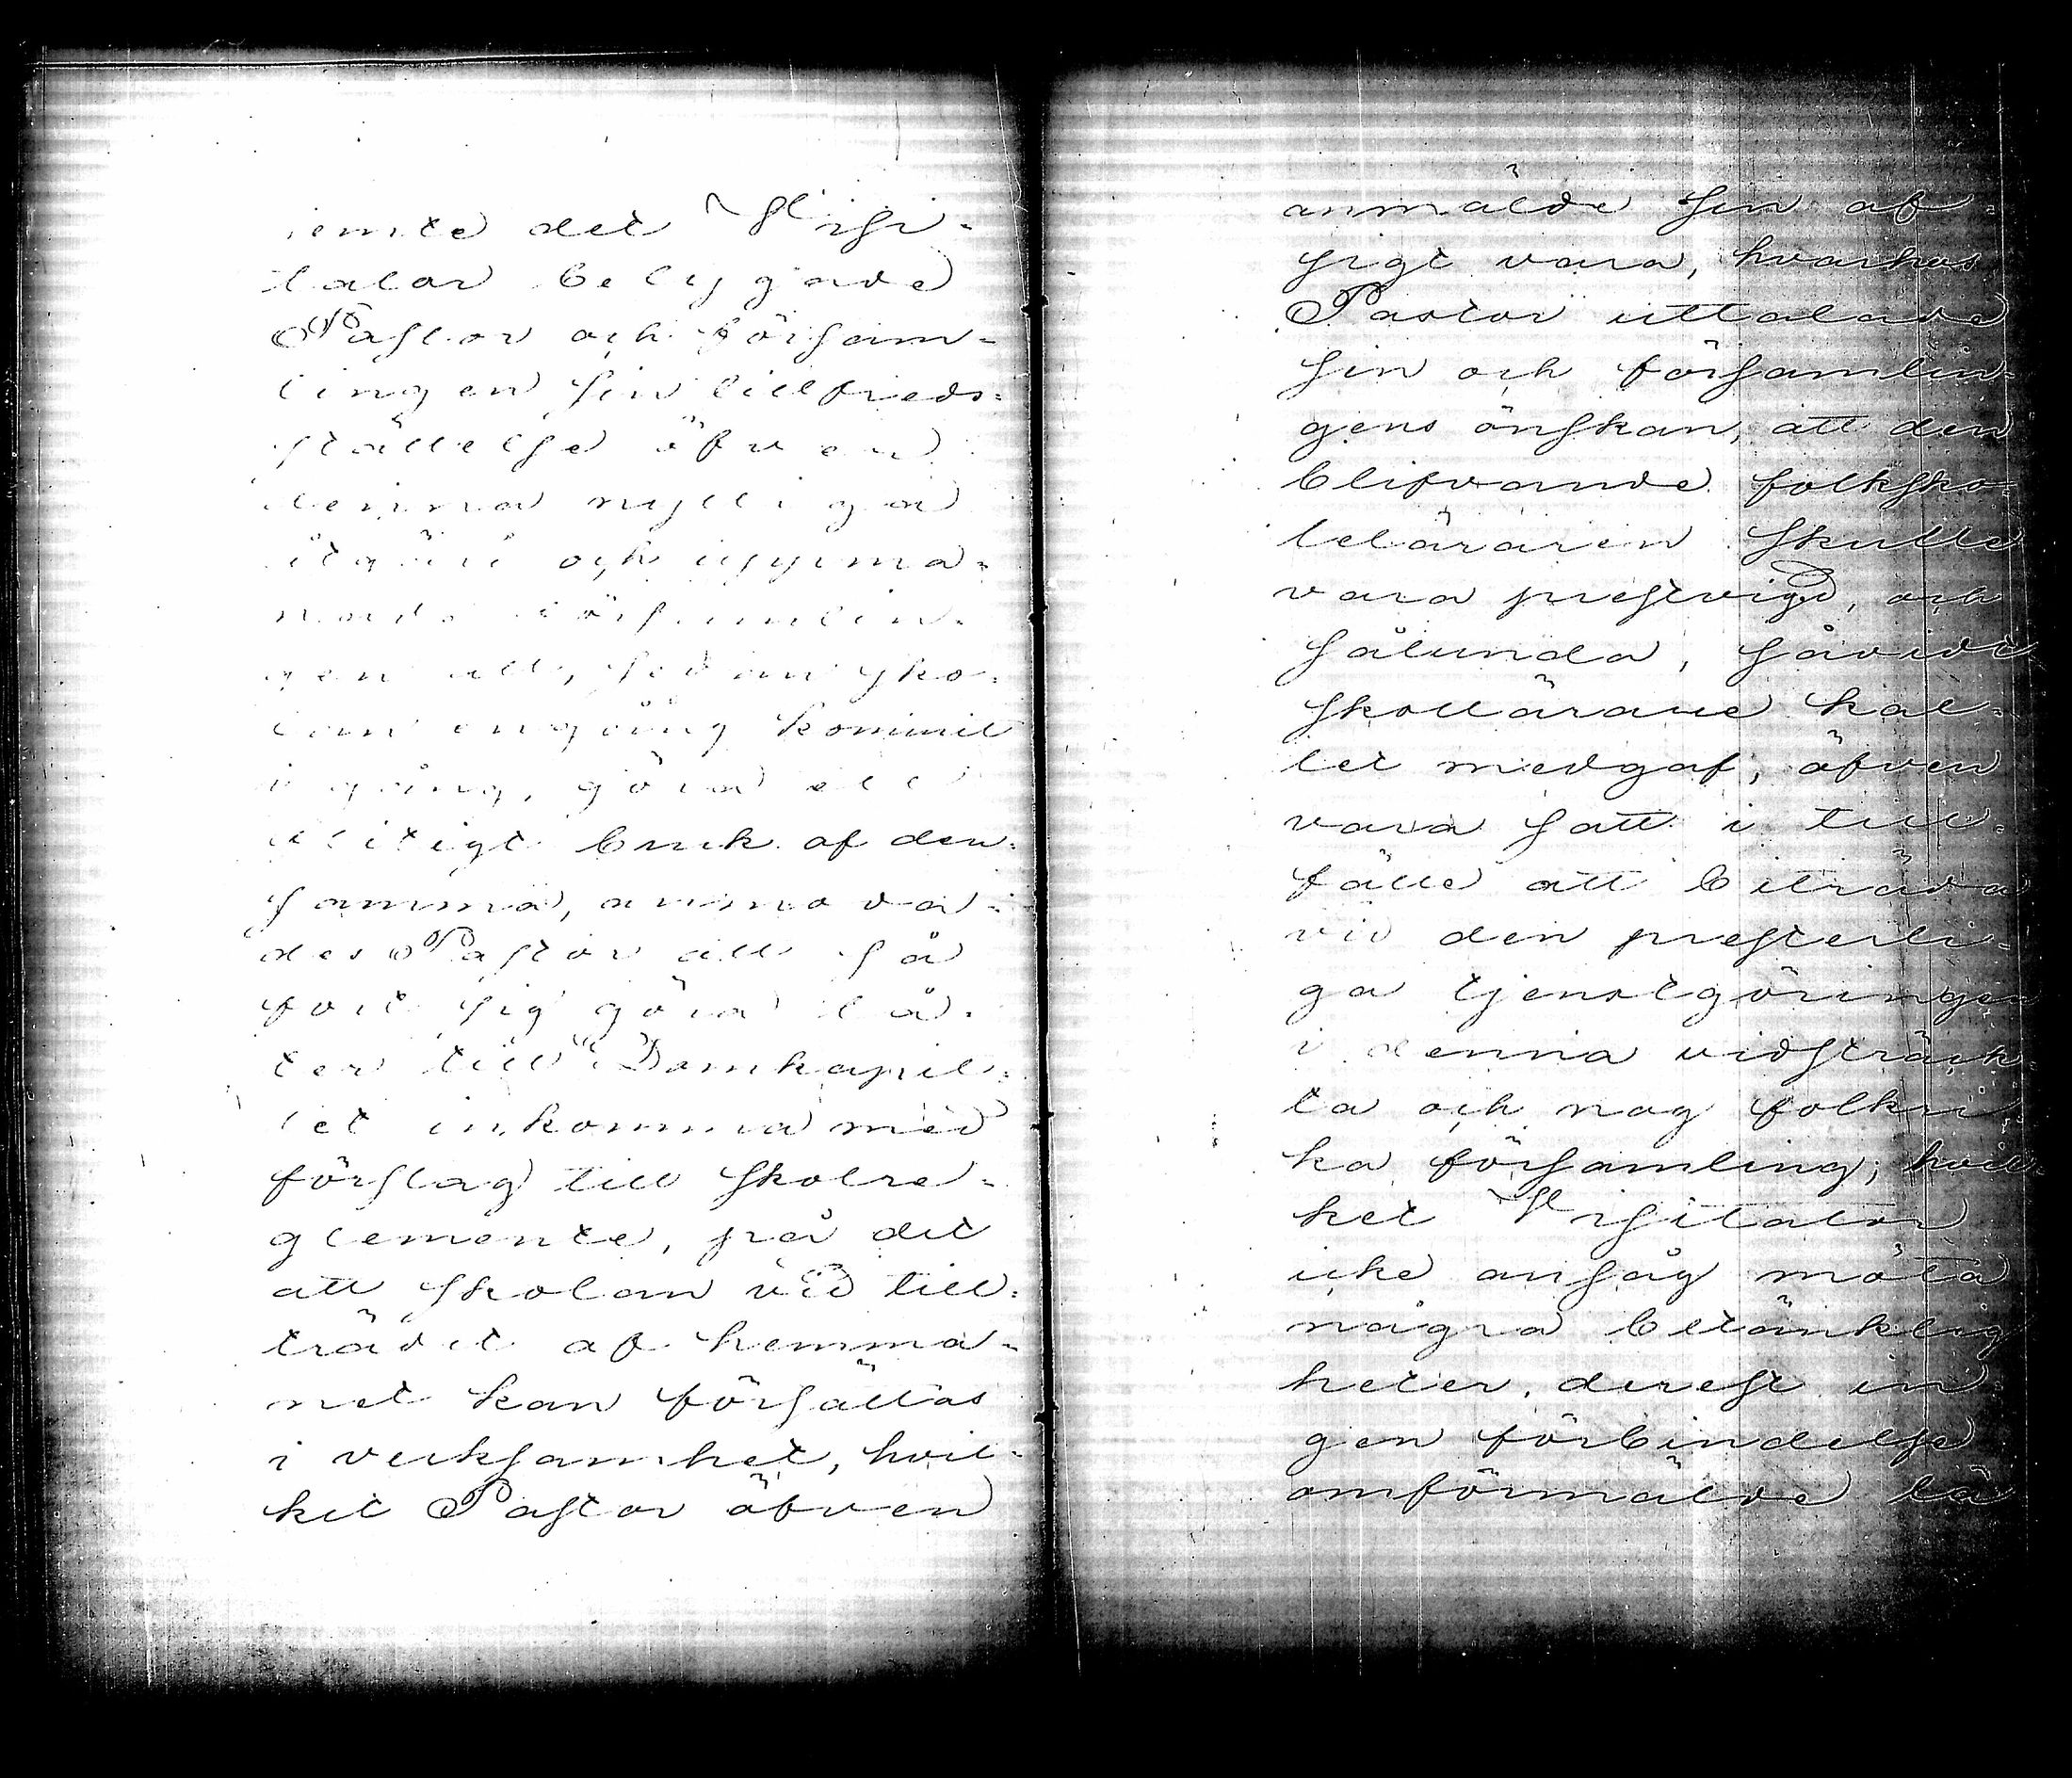 jemte det Visi-
tator betygade
Pastor och försam-
lingen sin tillfreds-
ställelse öfver
denna nyttiga
åtgärd och uppma-
nade försumlin-
gen att, sedan sko-
lan engång kommit
i gång, göra ett
flitigt bruk af den-
samma, anmoda-
des Pastor att så
fort sig göra lå-
ter till Domkapit-
let inkomma med
förslag till skolre-
glemente, på det
att skolan vid till-
trädet af hemma-
net kan försättas
i verksamhet, hvil-
ket Pastor äfven
anmälde sin af-
sigt vara, hvarhos
Pastor uttalade
sin och församlin-
gens önskan, att den
blifvande folksko-
leläraren skulle
vara prestvigd, och
sålunda, såvidt
skollärarekal-
let medgaf, äfven
vara satt i till-
fälle att biträda
vid den presterli-
ga tjenstgöringen
i denna vidsträck-
ta och nog folkri-
ka församling; hvil-
ket Visitator
icke ansåg möta
några betänklig
heter, derest in-
gen förbindelse
omförmälde lä